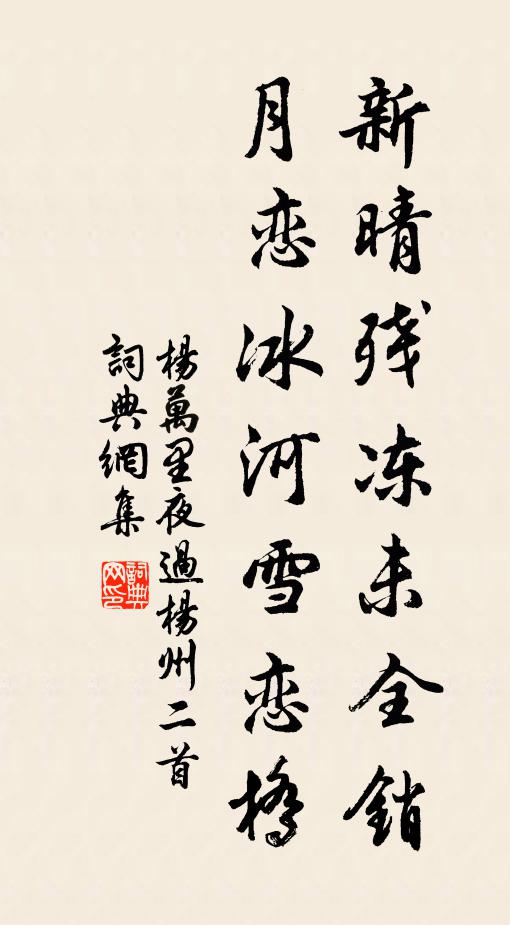 新晴残冻未全銷
月恋冰河雪恋橋
楊萬里夜過楊州二首
詞典網集
詞典
网印